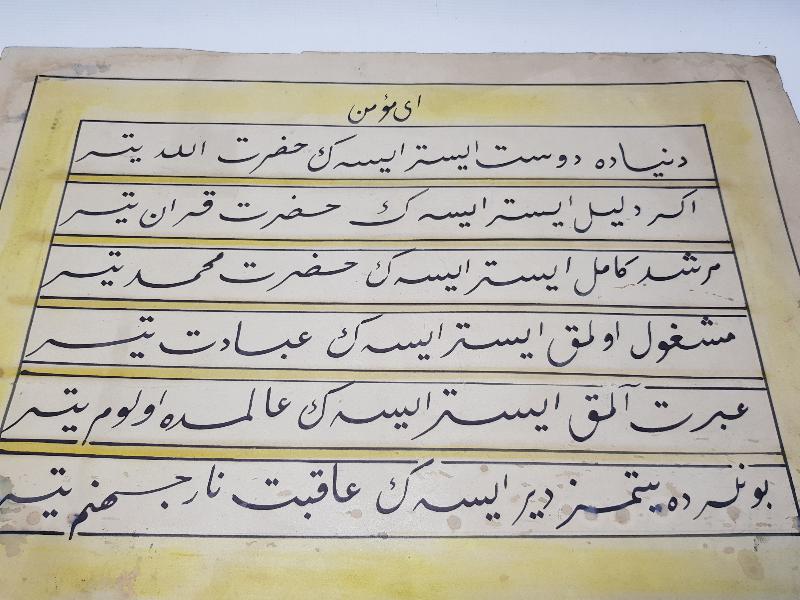 ای مؤمن
دنیاده دوست ایستر ایسه ك حضرت الله یتر
اكر دلیل ایستر ایسه ك حضرت قران یتر
مرشد كامل ایستر ایسه ك حضرت محمد یتر
مشغول اولمق ایستر ایسه ك عبادت یتر
عبرت آلمق ایستر ایسه ك عالمده اولوم یتر
بونلرده یتمز دیر ایسه ك عاقبت نار جهنم یتر